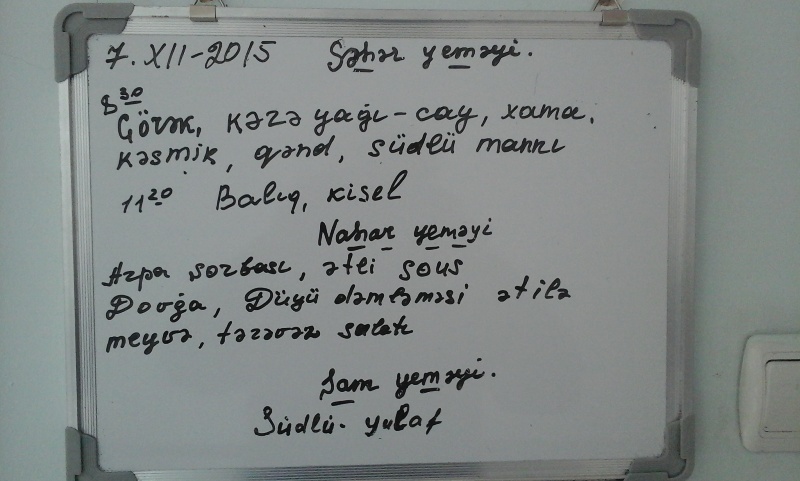 7. XII-2015 Səhər yeməyi.
8 30
Çörək, kərə yağı-cay, xama,
kəsmik, qənd, südlü mannı
11 20 Balıq, kisel
Nahar yeməyi
Arpa sorbası, ətli sous
Dovğa, Düyü dəmləməsi ətilə
meyvə, tərəvəz salatı
Şam yeməyi.
Südlü- yulaf